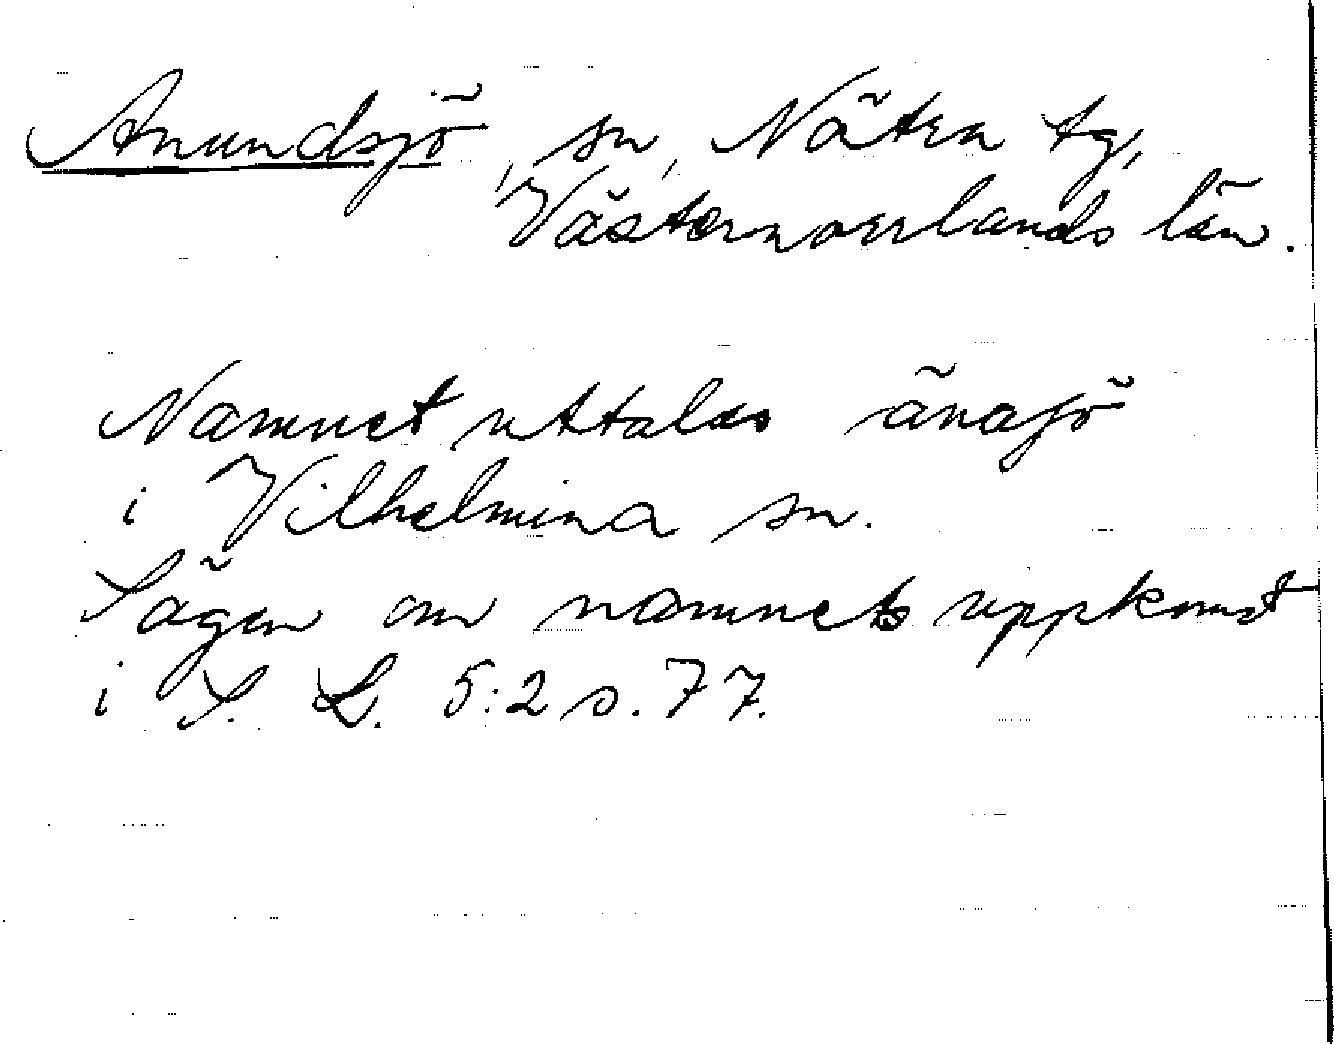 Anundsjö, sn, Nätra tg,
Västernorrlands län.
Namnet uttalas änasjö
i Vilhelmina sn.
Sägen om namnets uppkomst
i S. L. 5:2 s. 77.